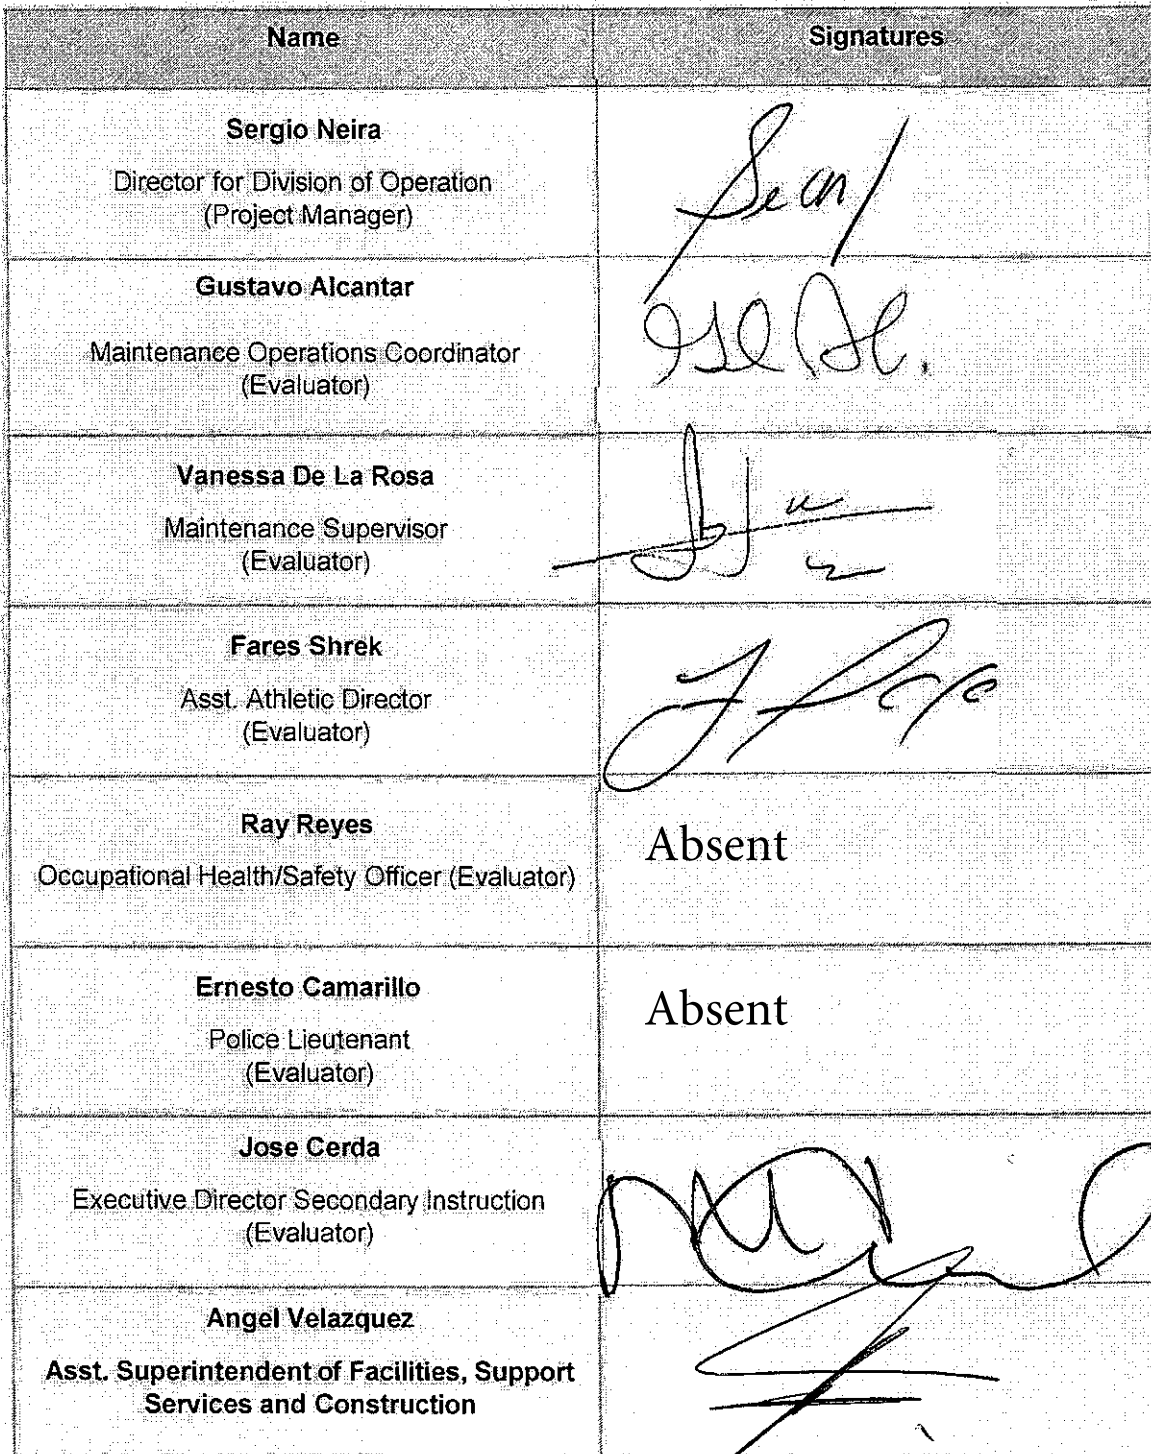 Name
Signatures
Sergio Neira
Director for Division of Operation
(Project Manager)
Gustavo Alcantar
Maintenance Operations Coordinator
(Evaluator)
Vanessa De La Rosa
Maintenance Supervisor
(Evaluator)
Fares Shrek
Asst. Athletic Director
(Evaluator)
Ray Reyes
Absent
Occupational Health/Safety Officer (Evaluator)
Ernesto Camarillo
Absent
Police Lieutenant
(Evaluator)
Jose Cerda
Executive Director Secondary Instruction
(Evaluator)
Angel Velazquez
Asst. Superintendent of Facilities, Support
Services and Construction